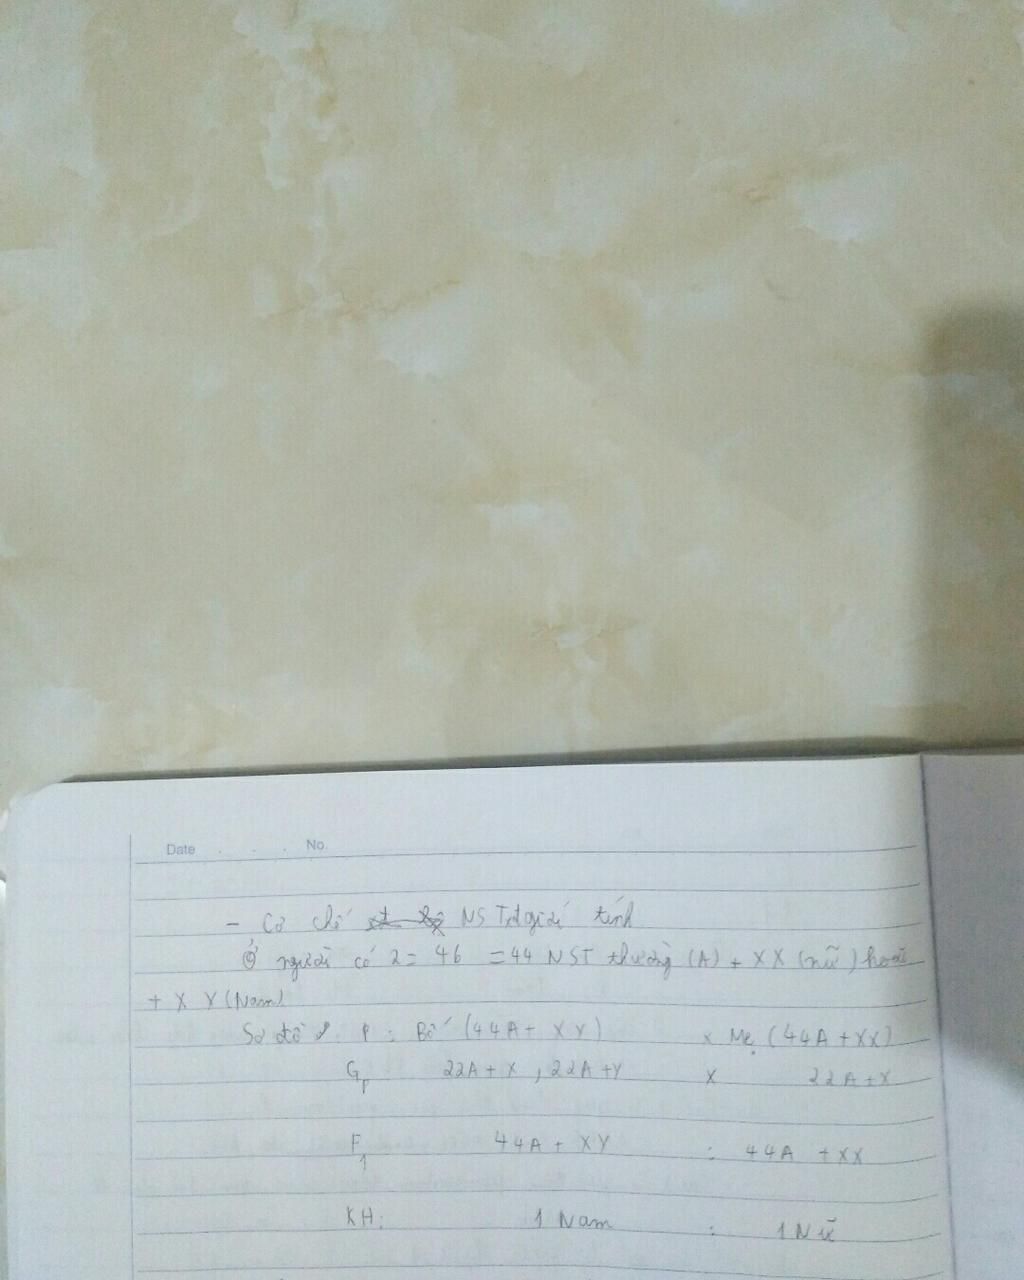 Date . . . No.
- Cơ chế NST giới tính
Ở người có 2 = 46 = 44 NST thường (A) + XX (nữ) hoặc
+ X Y (Nam)
Sơ đồ P : Bố (44A + XY) x Mẹ (44A + XX)
Gp 22A + X , 22A + Y x 22A + X
F1 44A + XY : 44A + XX
KH: 1 Nam : 1 Nữ